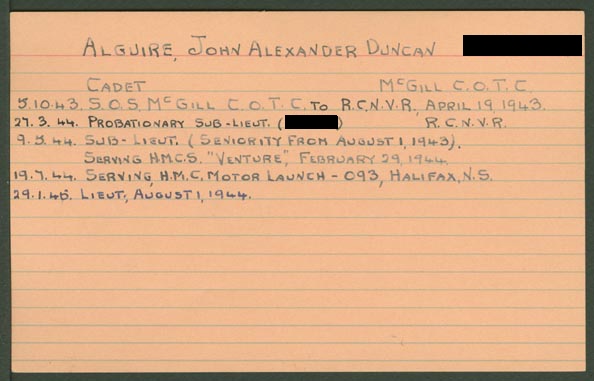 ALGUIRE, JOHN ALEXANDER DUNCAN
CADET McGILL C.O.T.C.
5.10.43. S.O.S. McGILL C.O.T.C. TO R.C.N.V.R, APRIL 19 1943.
27.3.44. PROBATIONARY SUB-LIEUT. ( ) R.C.N.V.R.
9.5.44. SUB-LIEUT. (SENIORITY FROM AUGUST 1, 1943).
SERVING H.M.C.S. "VENTURE", FEBRUARY 29, 1944.
19.7.44. SERVING, H.M.C. MOTOR LAUNCH - 093, HALIFAX, N.S.
29.1.45. LIEUT, AUGUST 1, 1944.